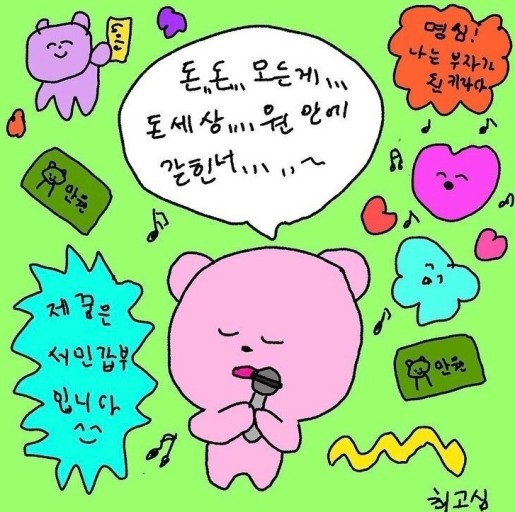 돈,, 돈,,, 모든게,,,
돈 세상,,,, 원 안에
갇힌너,,,, ,,~
명심!
나는 부자가
된 키라다
만원
제 꿈은
서민갑부
입니다
만원
최고심